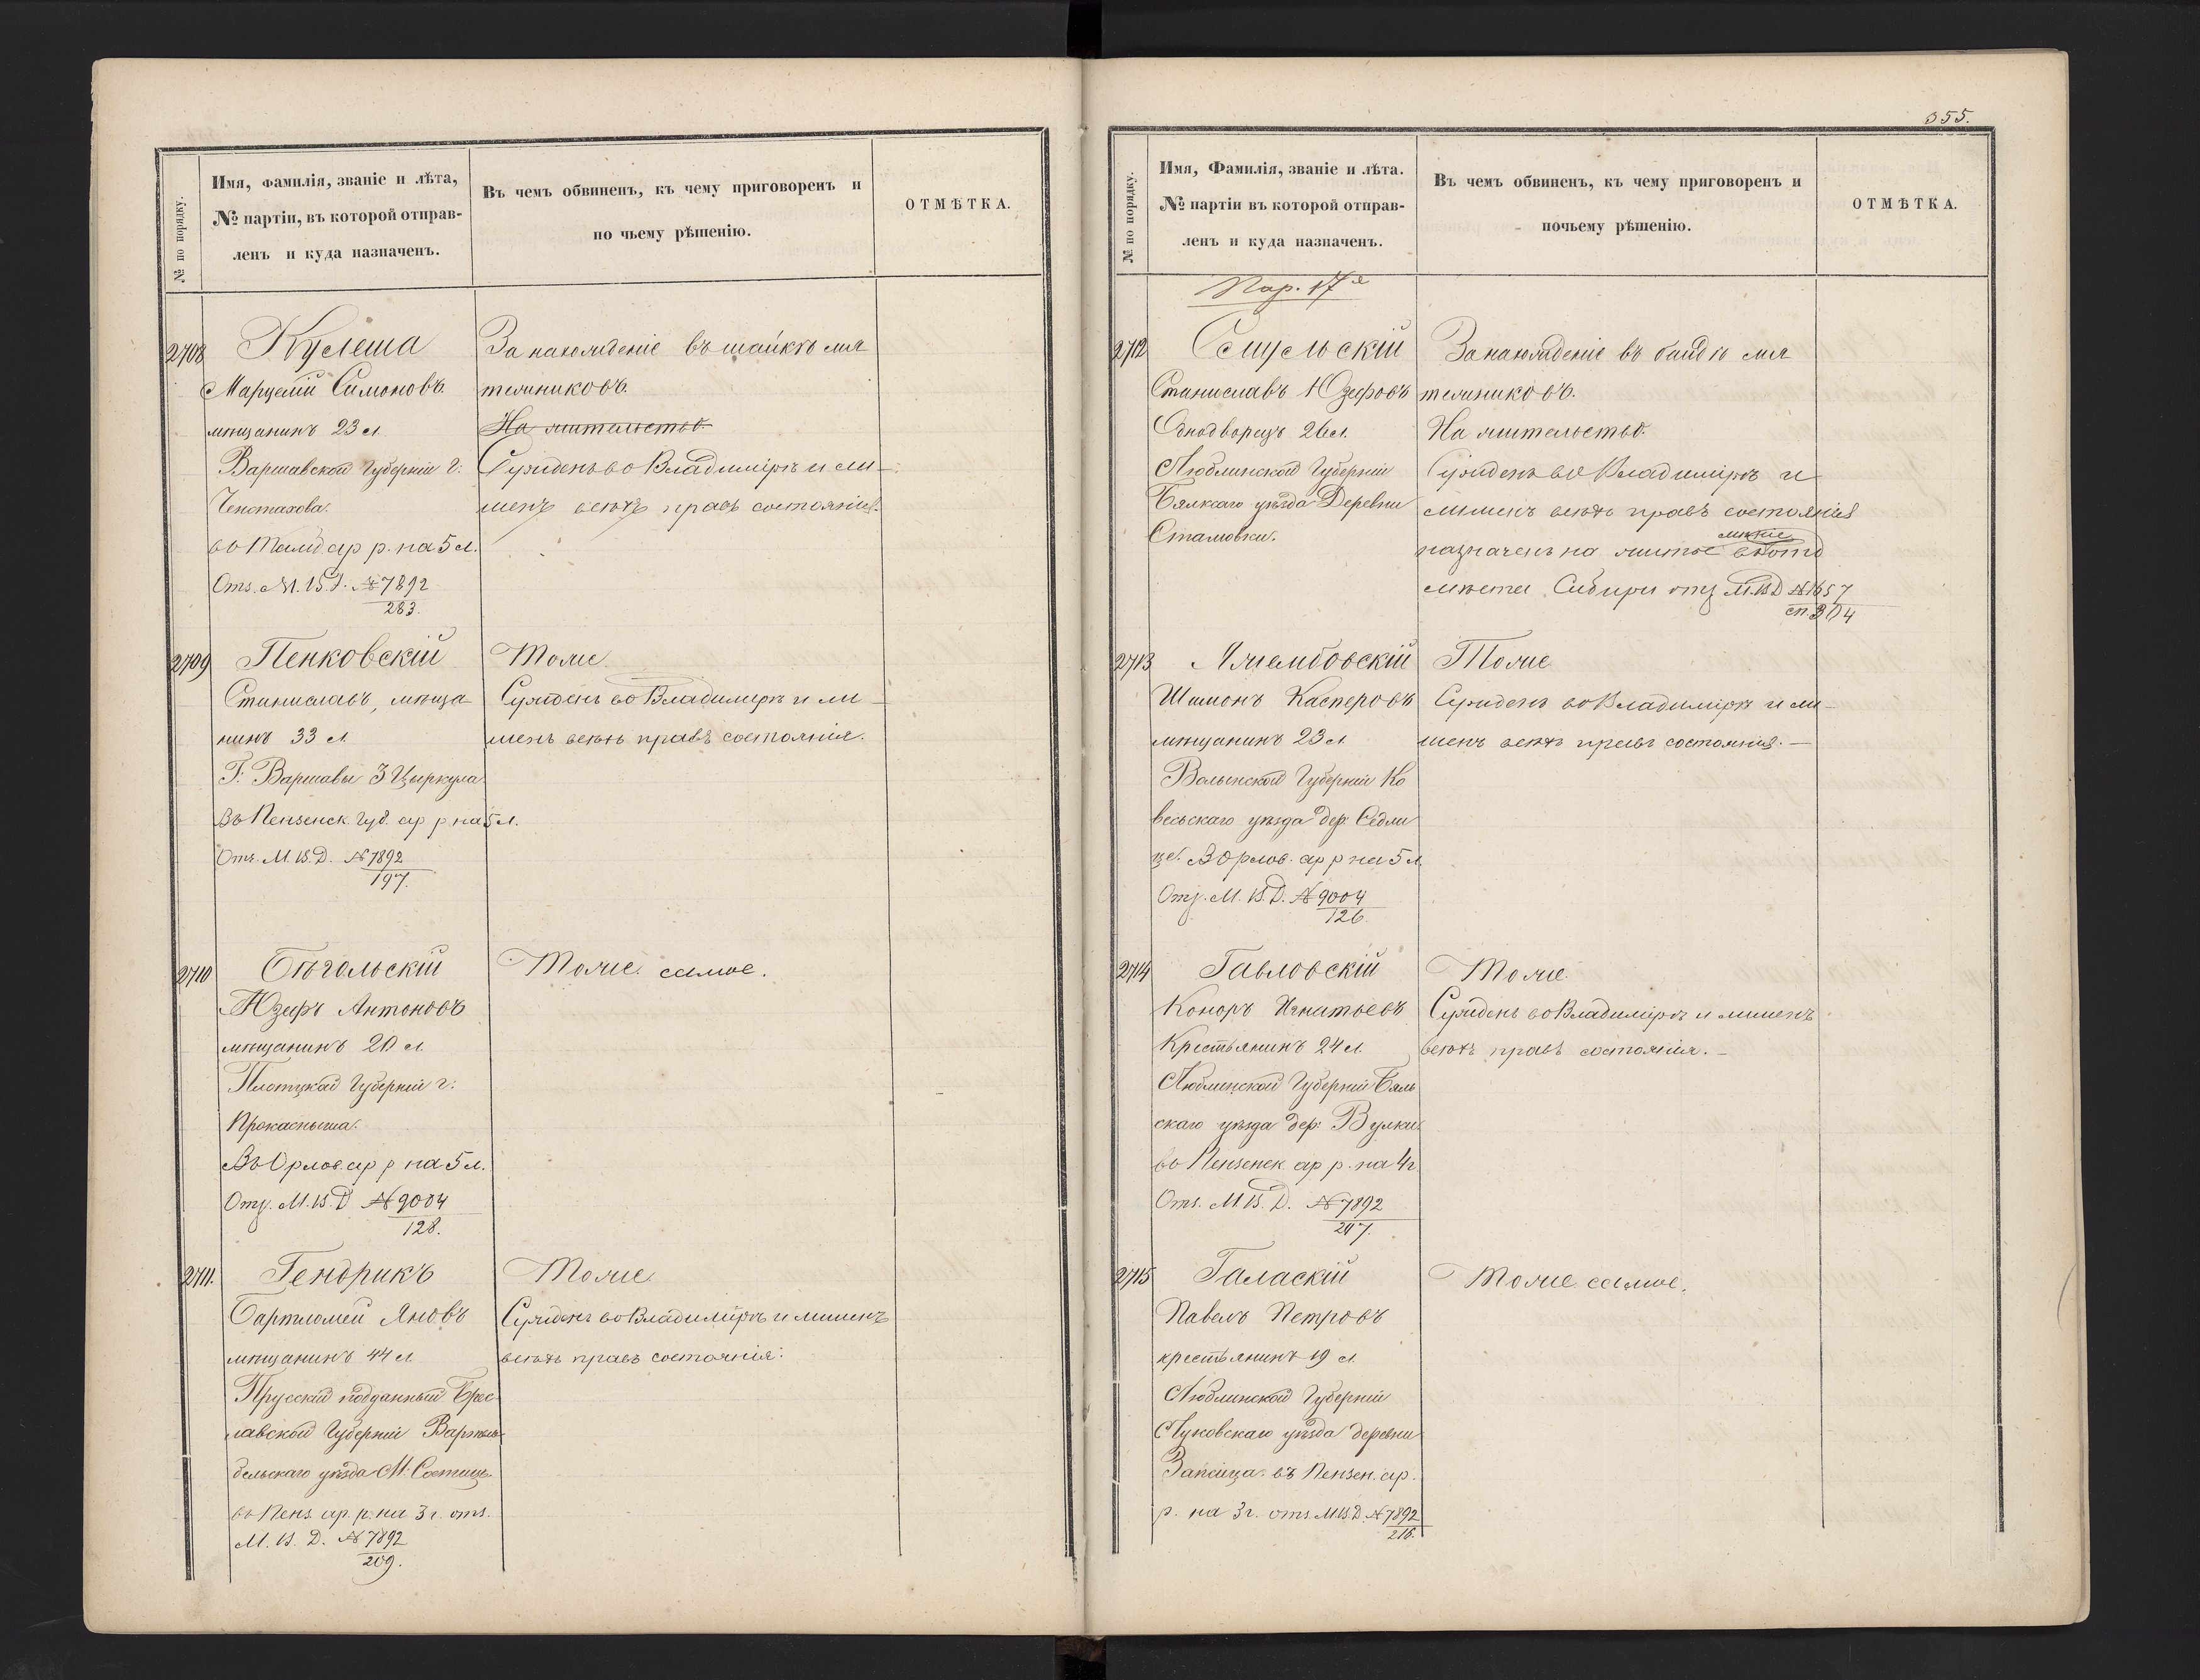 № по порядку.
Имя, фамилія, званіе и лѣта,
№ партіи, въ которой отправ-
ленъ и куда назначенъ.
Въ чемъ обвиненъ, къ чему приговоренъ и
по чьему рѣшенію.
ОТМѢТКА.
2708
Кулеша
Марцелій Симоновъ
мѣщанинъ 23 л.
Варшавской Губерніи г.
Ченстахова.
ар р. на 5 л.
Отз. М. В. Д. № 7892
283.
За нахожденіе въ шайкѣ мя
тежниковъ.
На жительство.
Сужденъ во Владимірѣ и ли-
шенъ всѣхъ правъ состоянія.
2709
Пенковскій
Станиславъ, мѣща-
нинъ 33 л.
Г. Варшавы 3 Цыркула
Въ Пензенск. Губ. ар р на 5 л.
Отз. М. В. Д. № 7892
197.
Тоже
Сужденъ во Владимірѣ и ли-
шенъ всѣхъ правъ состоянія.
2710
Бѣгальскій
Юзефъ Антоновъ
мѣщанинъ 20 л.
Плотцкой Губерніи г.
Прокасныша.
Въ Орлов. ар р на 5 л.
Отз. М. В. Д № 9004
128.
Тоже самое.
2711.
Гендрикъ
Бартломей Яновъ
мѣщанинъ 44 л.
Прусскій подданный Брес-
лавской Губерніи
бельскаго уѣзда М.
въ Пенз. ар. р. на 3 г. отз.
М. В. Д. № 7892
209.
Тоже.
Сужденъ во Владимірѣ и лишенъ
всѣхъ правъ состоянія.
355.
№ по порядку.
Имя, Фамилія, званіе и лѣта.
№ партіи въ которой отправ-
ленъ и куда назначенъ.
Въ чемъ обвиненъ, къ чему приговоренъ и
почьему рѣшенію.
ОТМѢТКА.
Пар. 17я
2712
Станиславъ Юзефовъ
Однодворецъ 26 л.
Люблинской Губерніи
Бялкскаго уѣзда Деревни
За нахожденіе въ бандѣ мя
тежниковъ.
На жительство.
Сужденъ во Владимірѣ и
лишенъ всѣхъ правъ состоянія
назначенъ на житье
мѣста Сибири отз М. В Д № 1657
сп. 304
2713
Шимонъ Касперовъ
мѣщанинъ 23 л.
Волынской Губерніи Ко
вельскаго уѣзда дер. Седли
ще. В Орлов. ар р на 5 л.
Отз. М. В. Д. № 9004
126.
Тоже
Сужденъ во Владимірѣ и ли-
шенъ всѣхъ правъ состоянія. —
2714
Гавловскій
Коноръ Игнатьевъ
Крестьянинъ 24 л.
Люблинской Губерніи Бяль
скаго уѣзда дер. Вулки
въ Пензенск. ар р. на 4 г.
Отз. М. В. Д. № 7892
Тоже.
Сужденъ во Владимірѣ и лишенъ
всѣхъ правъ состоянія. —
2715
Галаскій
Павелъ Петровъ
крестьянинъ 19 л.
Люблинской Губерніи
Луковскаго уѣзда деревни
въ Пензен. ар.
р. на 3 г. отз. М. В. Д. № 7892
216.
Тоже самое.